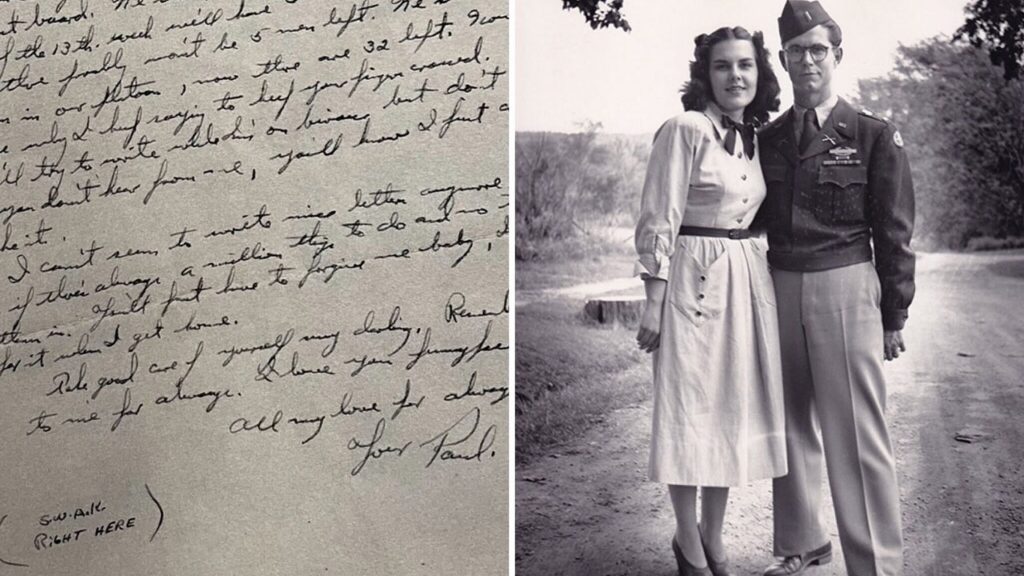 board.
of the 13th. week we'll have
there finally won't be 5 men left. He's
in our platoon, now there are 32 left.
only I keep saying to keep your fingers crossed.
I'll try to write while he's on bivouac but don't
you don't hear from me, you'll know I just
I can't seem to write nice letters anymore
if there's always a million things to do and no
them in. You'll just have to forgive me baby, I
for it when I get home.
Take good care of yourself my darling. Rememb
to me for always. I love your funny face
All my love for always
Your Paul.
(S.W.A.K.
RIGHT HERE)